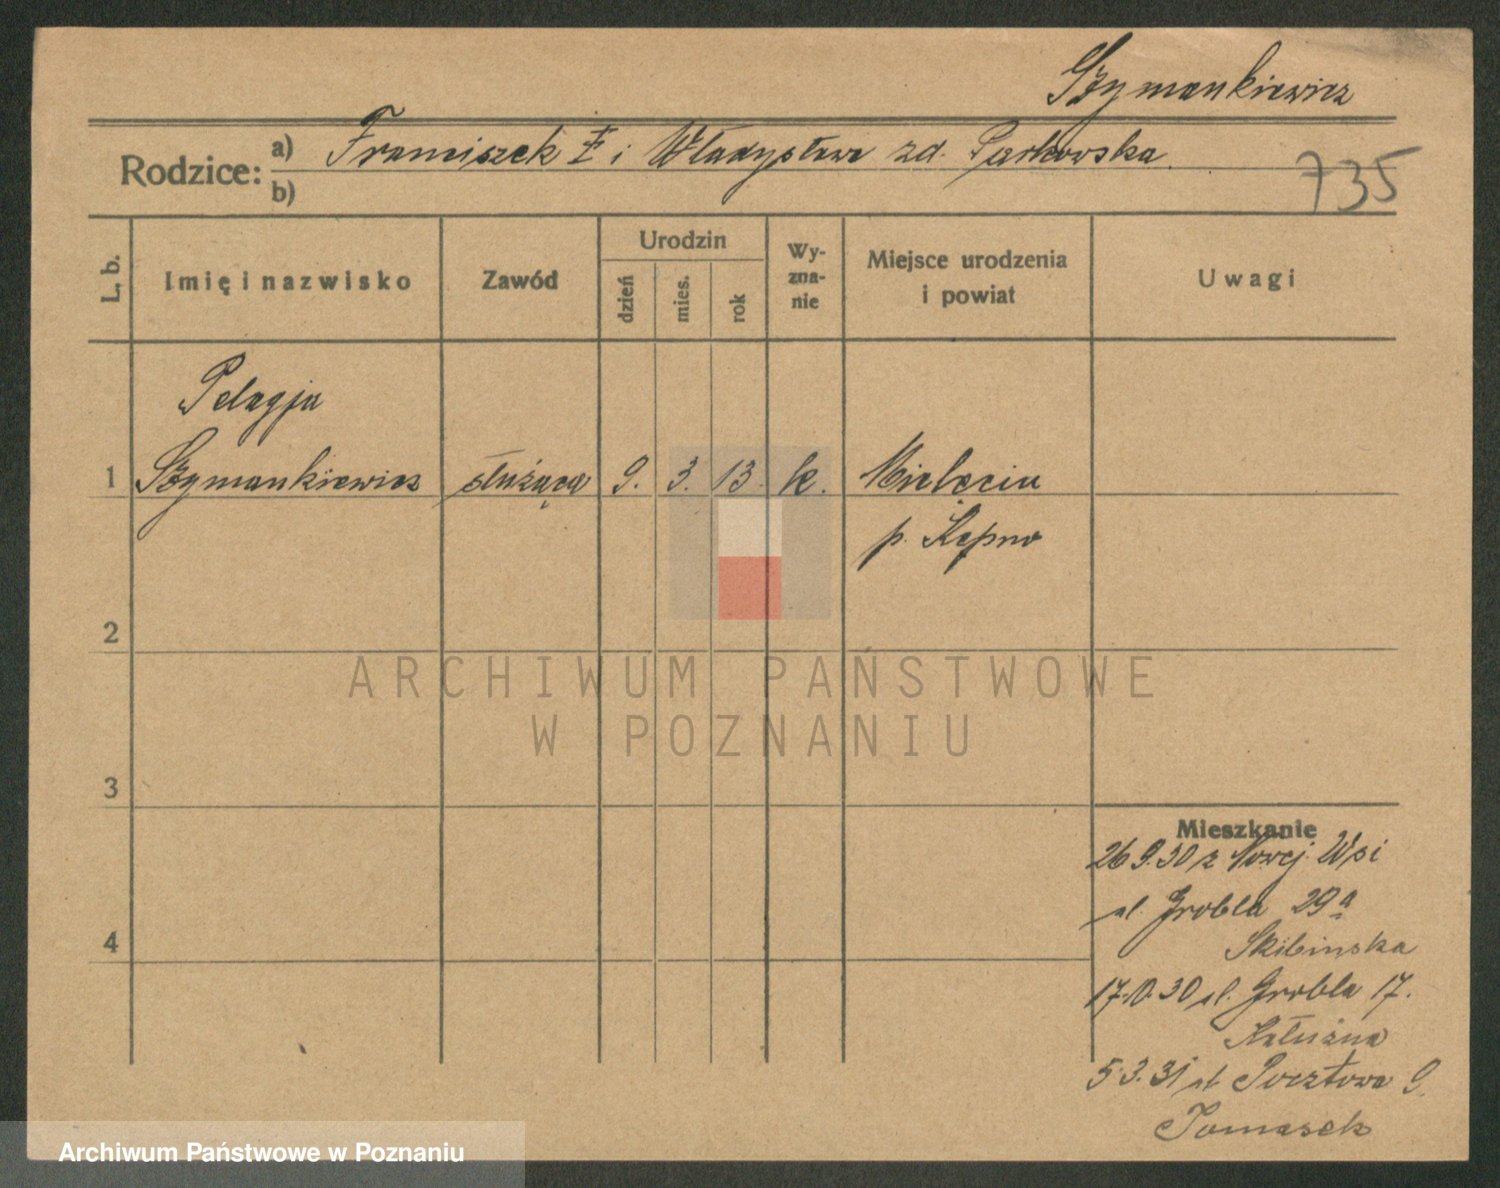 Szymankiewicz
Rodzice: a) Franciszek i Władysława zd. Parkowska
b)
735
L. b.
Imię i nazwisko
Zawód
Urodzin
dzień
mies.
rok
Wy-
zna-
nie
Miejsce urodzenia
i powiat
Uwagi
Pelagja
1 Szymankiewicz służąca 9. 3. 13. k. Mielęcin
p. Kępno
2
3
4
Mieszkanie
26 9.30 z Nowej Wsi
ul. Grobla 29a
Skibinska
17.10.30 ul. Grobla 17.
Kałużna
5.3.31 ul. Pocztowa 9.
Tomasek
ARCHIWUM PAŃSTWOWE
W POZNANIU
Archiwum Państwowe w Poznaniu